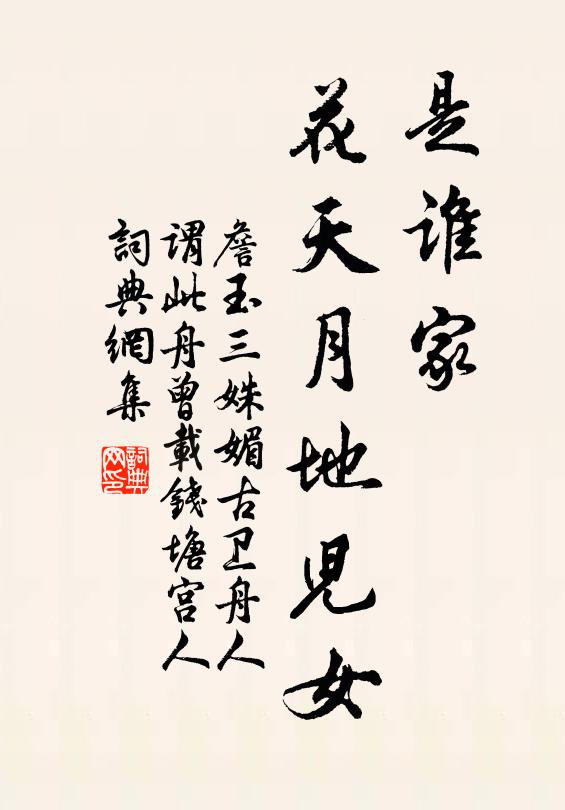 是誰家
花天月地兒女
詹玉三姝媚古卫舟人
謂此舟曾載錢塘宫人
詞典網集
詞典网印